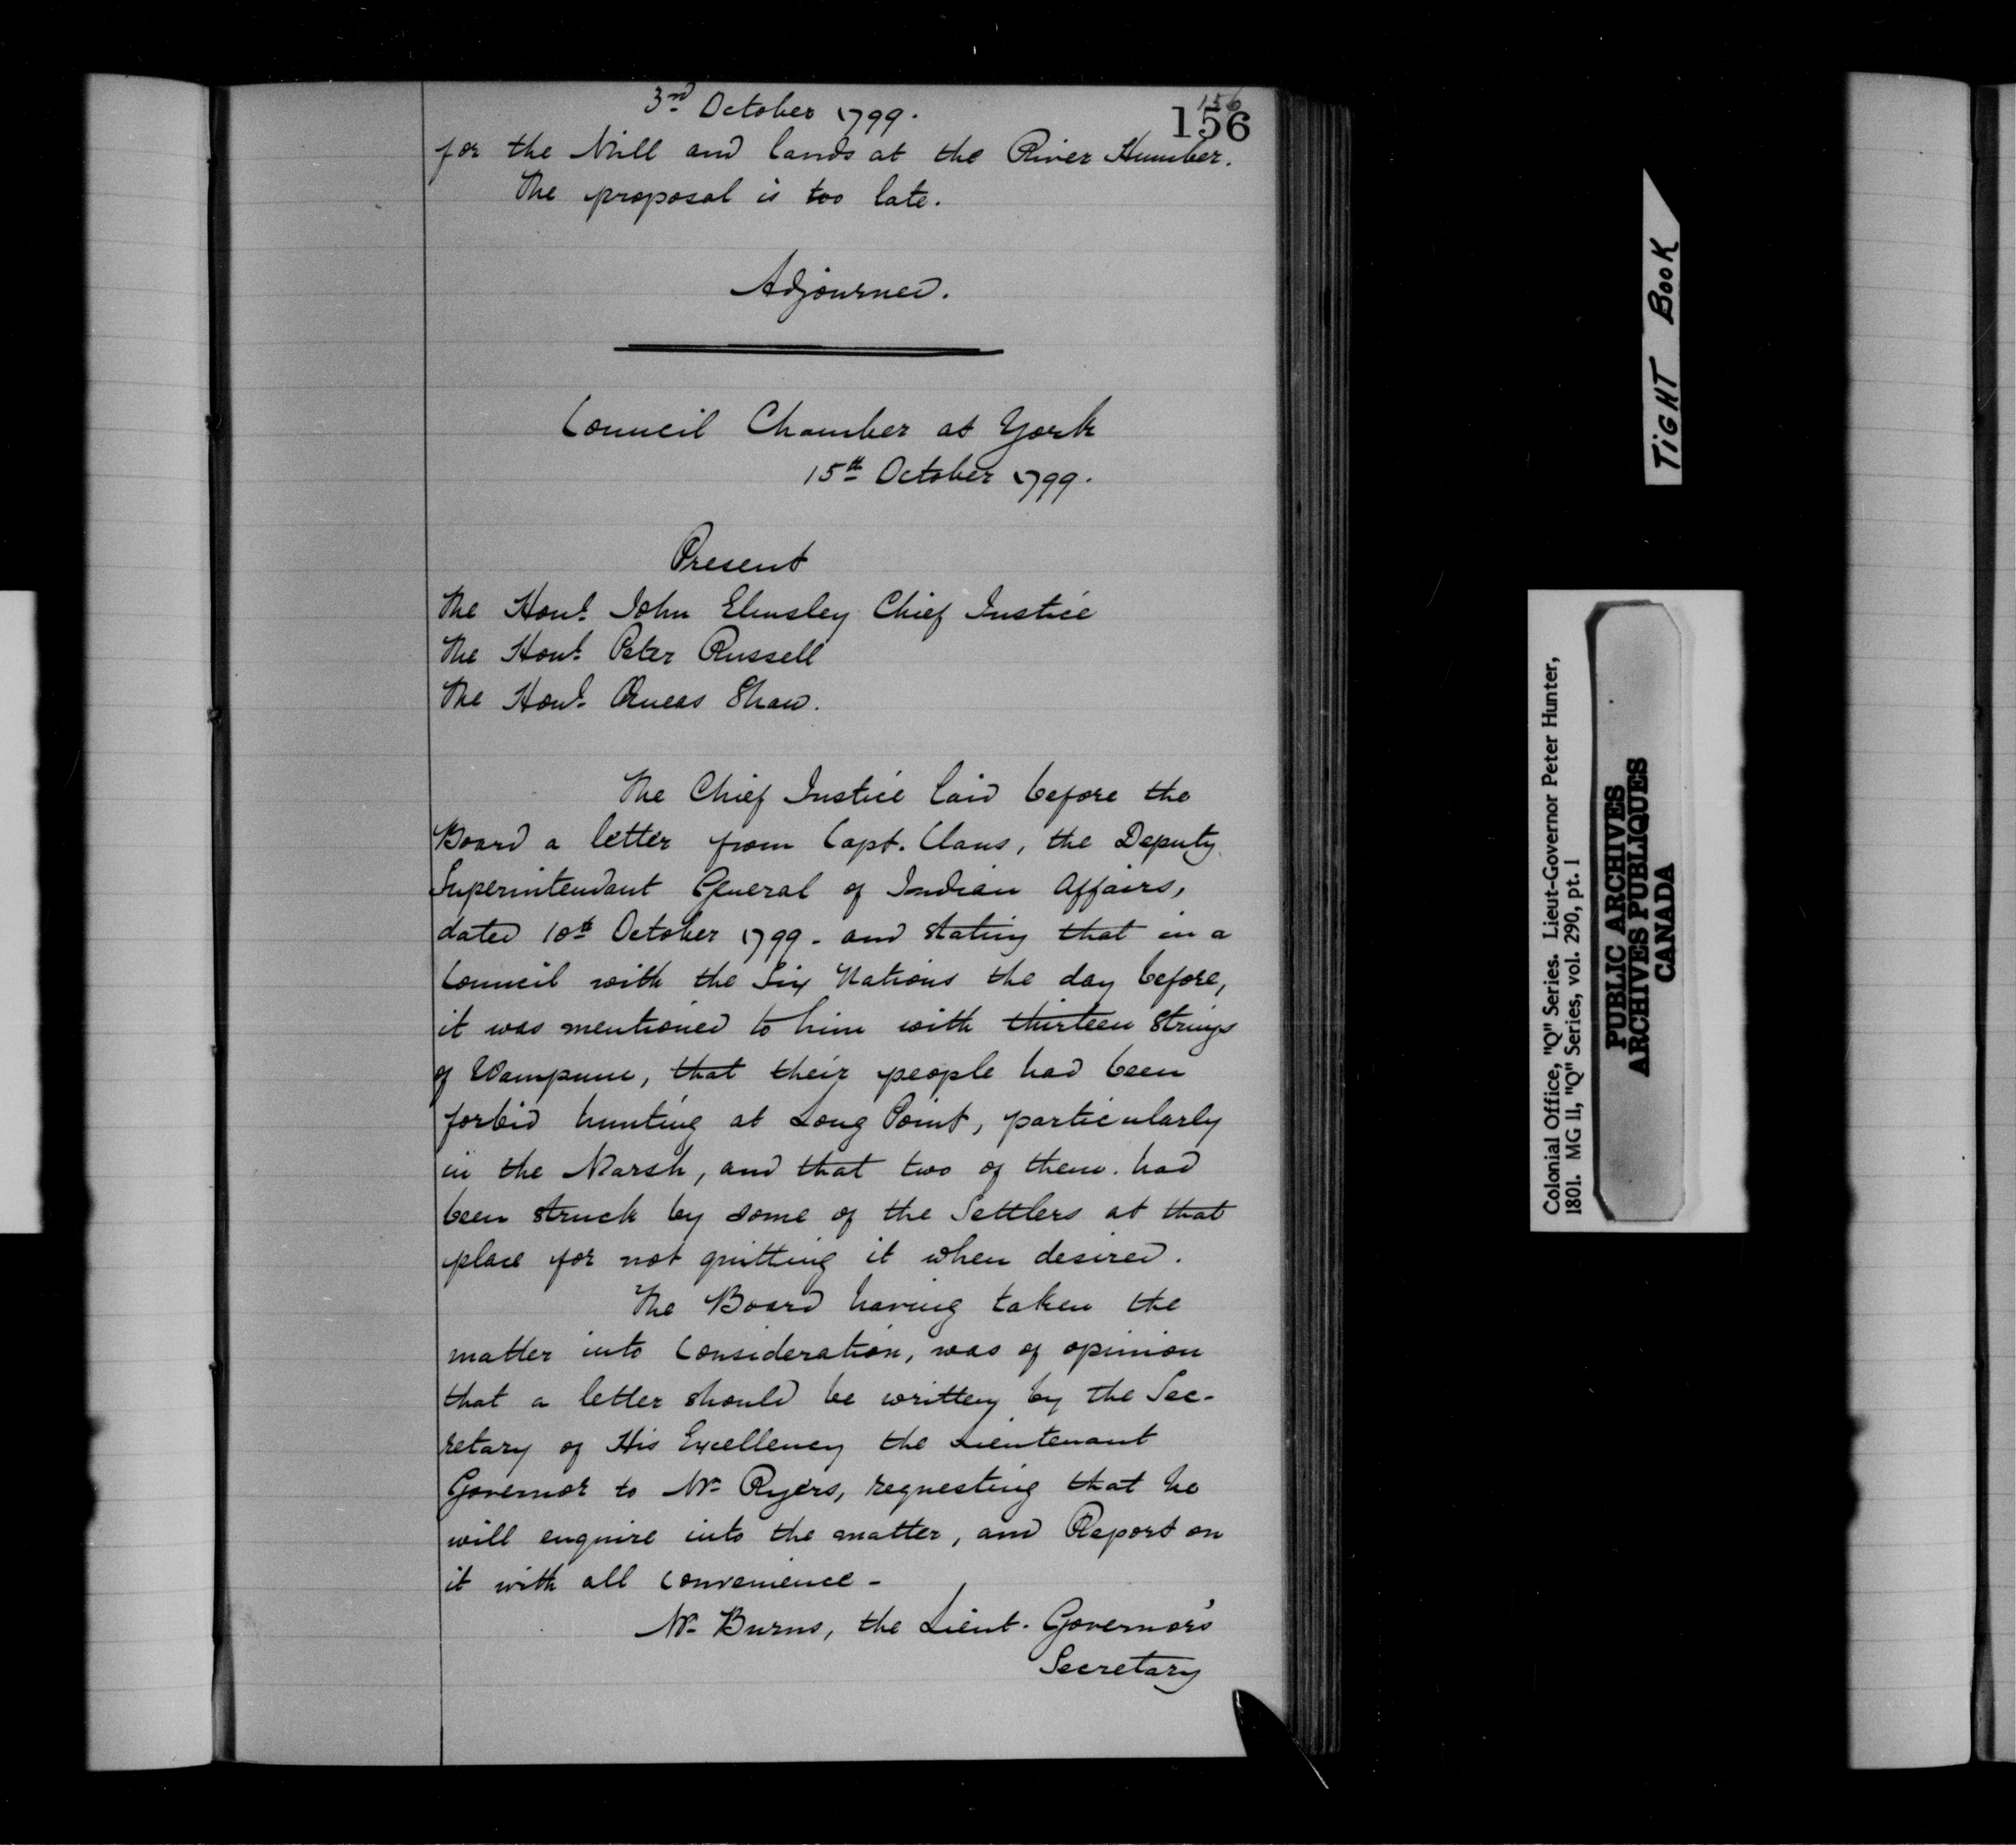 3rd October 1799.
156
156
for the Mill and lands at the River Humber.
The proposal is too late.
Adjourned.
Council Chamber at York
15th October 1799.
Present
The Honl. John Elmsley Chief Justice
The Honl. Peter Russell
The Honl. Æneas Shaw.
The Chief Justice laid before the
Board a letter from Capt. Claus, the Deputy
Superintendant General of Indian Affairs,
dated 10th October 1799 - and stating that in a
Council with the Six Nations the day before,
it was mentioned to him with thirteen Strings
of Wampum, that their people had been
forbid hunting at Long Point, particularly
in the Marsh, and that two of them had
been struck by some of the Settlers at that
place for not quitting it when desired.
The Board having taken the
matter into Consideration, was of opinion
that a letter should be written by the Sec-
retary of His Excellency the Lieutenant
Governor to Mr. Ryers, requesting that he
will enquire into the matter, and Report on
it with all convenience -
Mr. Burns, the Lieut. Governor's
Secretary
TIGHT BOOK
Colonial Office, "Q" Series. Lieut-Governor Peter Hunter,
1801. MG 11, "Q" Series, vol. 290, pt. 1
PUBLIC ARCHIVES
ARCHIVES PUBLIQUES
CANADA